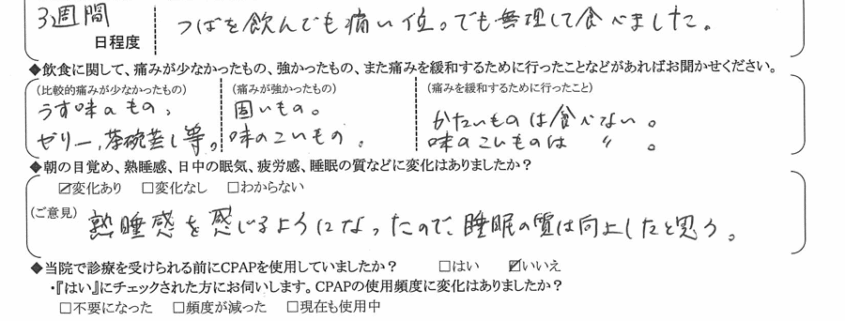 3週間
日程度
つばを飲んでも痛い位。でも無理して食べました。
◆飲食に関して、痛みが少なかったもの、強かったもの、また痛みを緩和するために行ったことなどがあればお聞かせください。
(比較的痛みが少なかったもの)
うす味のもの、
ゼリー、茶碗蒸し等。
(痛みが強かったもの)
固いもの。
味のこいもの。
(痛みを緩和するために行ったこと)
かたいものは食べない。
味のこいものは 〃 。
◆朝の目覚め、熟睡感、日中の眠気、疲労感、睡眠の質などに変化はありましたか？
☑変化あり □変化なし □わからない
(ご意見)
熟睡感を感じるようになったので、睡眠の質は向上したと思う。
◆当院で診療を受けられる前にCPAPを使用していましたか？ □はい ☑いいえ
・『はい』にチェックされた方にお伺いします。CPAPの使用頻度に変化はありましたか？
□不要になった □頻度が減った □現在も使用中